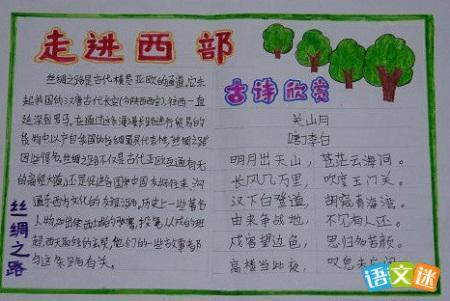 走进西部
丝绸之路是古代横贯亚欧的通道,它东
起我国的汉唐古代长安(今陕西西安),往西一直
延深到罗马,在通过这条漫长的路进行贸易的
货物中,以产自我国的丝绸最具代表性,丝绸之路
因此得名。丝绸之路不仅是古代亚欧互通有无
的商贸大道,还是促进各国和中国友好往来、沟
通东西方文化的友谊之路。历史上一些著名
人物,如出使西域的张骞,投笔从戎的班
超,西天取经的玄奘,他们的一些故事都
与这条路有关。
丝绸之路
古诗欣赏
关山月
[唐]李白
明月出天山,苍茫云海间。
长风几万里,吹度玉门关。
汉下白登道,胡窥青海湾。
由来争战地,不见有人还。
戍客望边色,思归多苦颜。
高楼当此夜,叹息未应闲。
语文迷